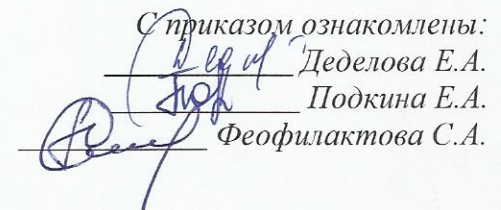 С приказом ознакомлены:
Деделова Е.А.
Подкина Е.А.
Феофилактова С.А.